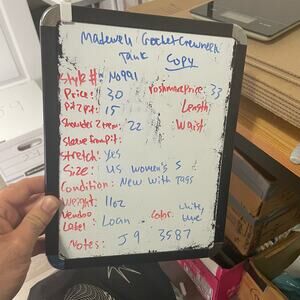 Madewell Crochet Crewneck
Tank Copy
Style #: NO991
Price: 30 Poshmark price: 33
Pit 2 Pit: 15 Length:
Shoulder 2 Hem: 22 Waist:
Sleeve from pit:
Stretch: Yes
Size: US women's S
Condition: New with Tags
Weight: 11oz
Vendoo Label: Loan Color: white, blue
Notes: J9 3587